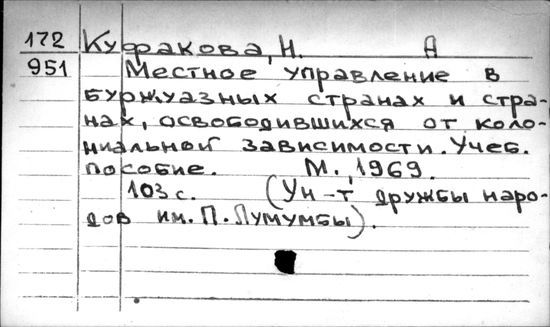 172 Куфакова, Н. А
951 Местное управление в
буржуазных странах и стра-
нах, освободившихся от коло-
ниальной зависимости. Учеб.
пособие. М., 1969.
103 с. (Ун-т дружбы наро-
дов им. П. Лумумбы).